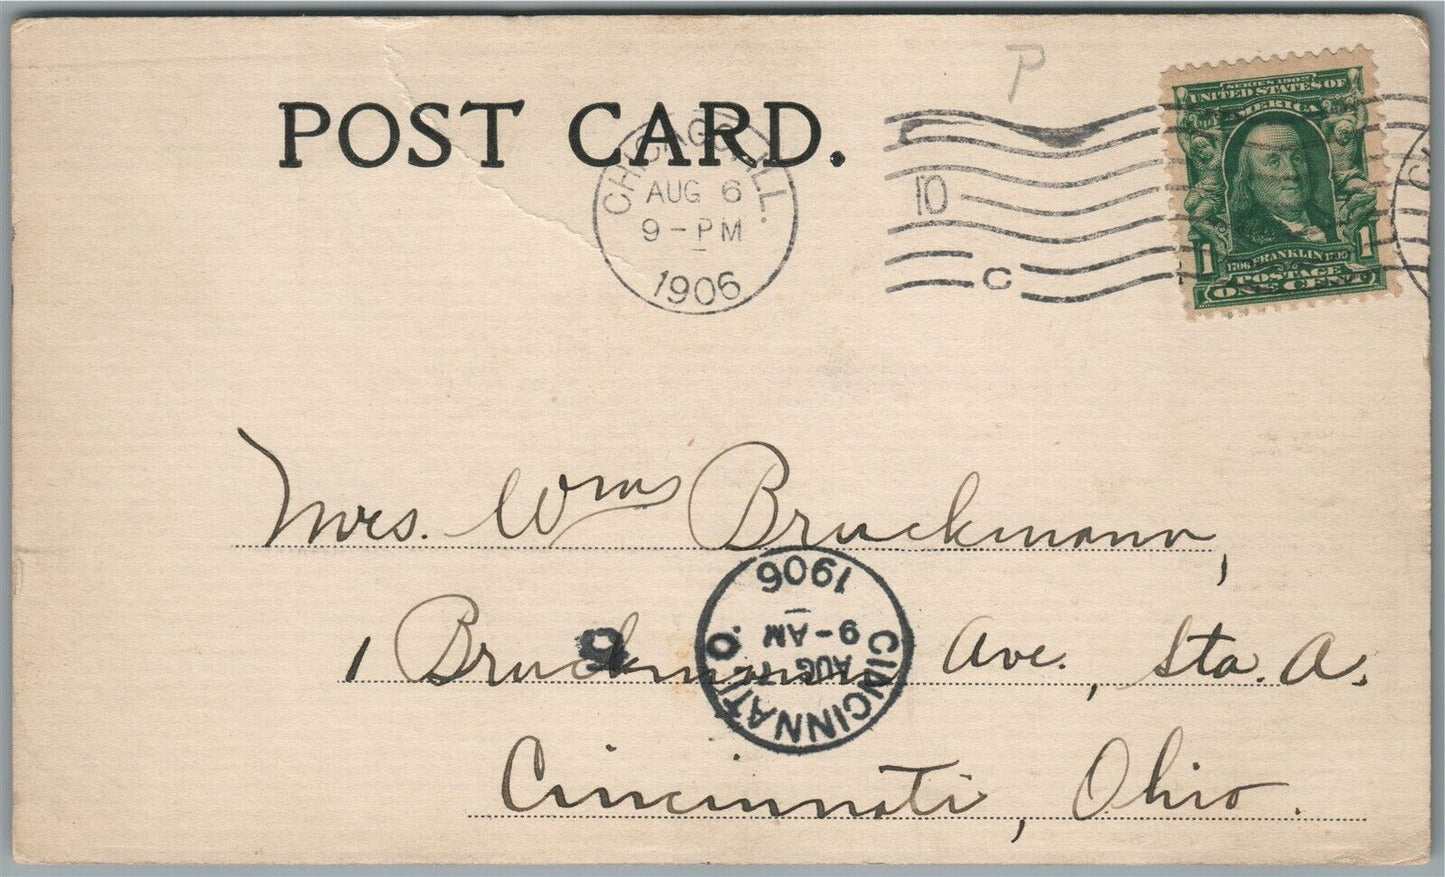 P
POST CARD.
CHICAGO, ILL.
AUG 6
9-PM
1906
10
C
SERIES 1902
UNITED STATES OF
AMERICA
1706 FRANKLIN 1790
1 1
POSTAGE
ONE CENT
Mrs. Wm Bruckmann,
1 Bruckmann Ave., Sta. A.
Cincinnati, Ohio.
6
CINCINNATI, O.
AUG 7
9-AM
1906